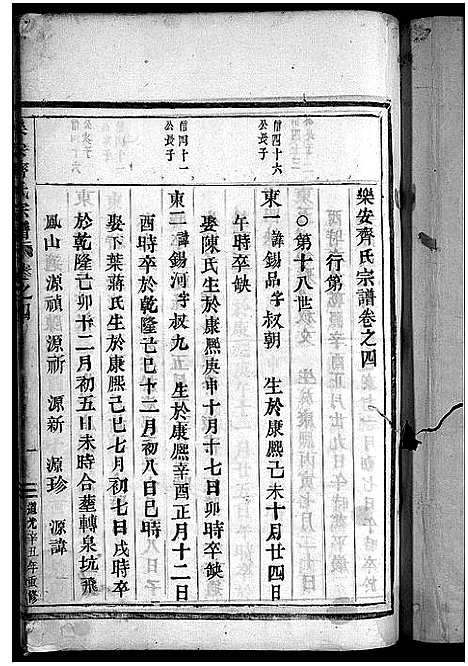 樂安齊氏宗譜卷之四
行第
○第十八世
信四十六
公長子
東一 諱錫品字叔朝 生於康熙己未十月廿四日
午時卒缺
娶陳氏生於康熙庚申十月十七日卯時卒缺
信四十一
公長子
東二 諱錫河字叔九 生於康熙辛酉正月十二日
酉時卒於乾隆己巳十二月初八日巳時
娶下葉蔣氏生於康熙己巳七月初七日戌時卒
於乾隆己卯十二月初五日未時合塟轉泉坑飛
鳳山 源禎 源祈 源新 源珍 源諱
卷之四
一
道光辛丑年重修